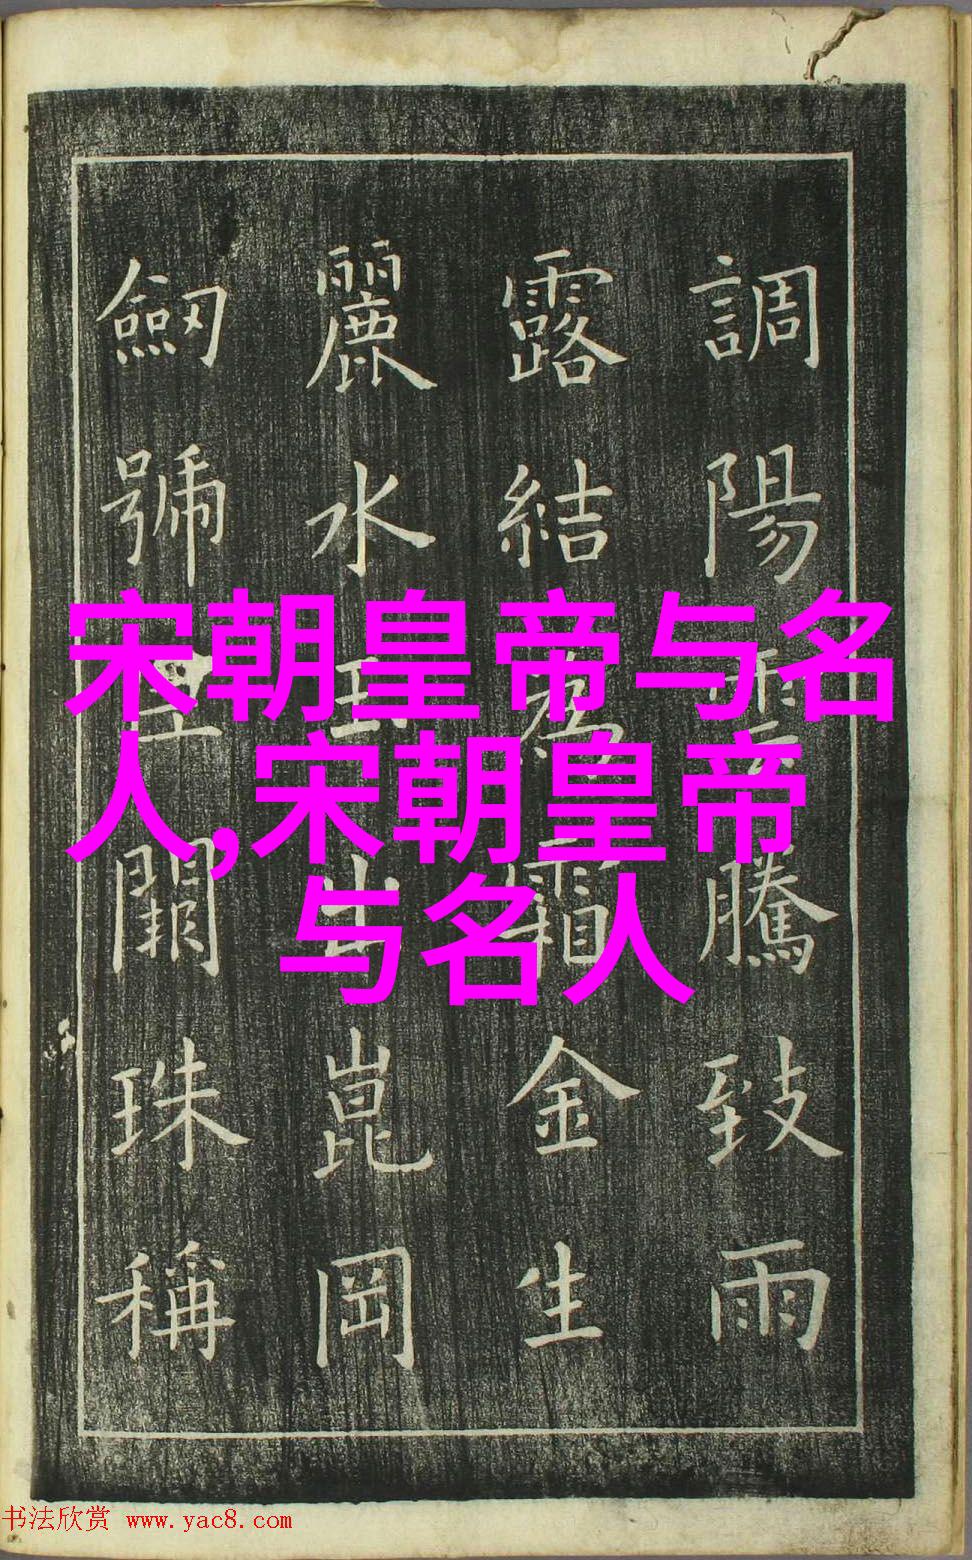 調陽雲騰致雨
露結為霜金生
麗水玉出崑岡
劒號巨闕珠稱
宋朝皇帝与名
人,宋朝皇帝
与名人
书法欣赏 www.yac8.com